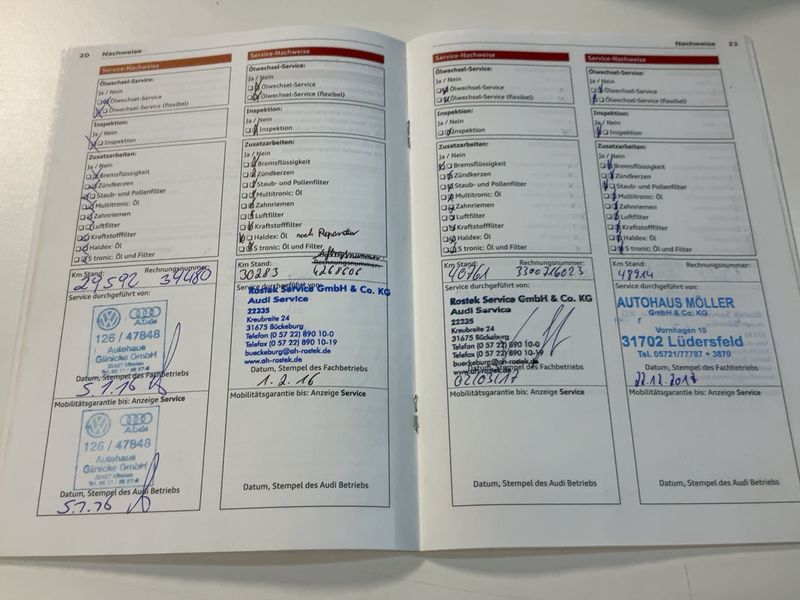 20 Nachweise
Service-Nachweise
Ölwechsel-Service:
Ja / Nein
Ölwechsel-Service
Ölwechsel-Service (flexibel)
Inspektion:
Ja / Nein
Inspektion
Zusatzarbeiten:
Ja / Nein
Bremsflüssigkeit
Zündkerzen
Staub- und Pollenfilter
Multitronic: Öl
Zahnriemen
Luftfilter
Kraftstofffilter
Haldex: Öl
S tronic: Öl und Filter
Km Stand: Rechnungsnummer:
29592 39480
Service durchgeführt von:
Audi
126 / 47848
Autohaus
Glinicke GmbH
Datum, Stempel des Fachbetriebs
5.1.16
Mobilitätsgarantie bis: Anzeige Service
Audi
126 / 47848
Autohaus
Glinicke GmbH
Datum, Stempel des Audi Betriebs
5.1.16
Service-Nachweise
Ölwechsel-Service:
Ja / Nein
Ölwechsel-Service
Ölwechsel-Service (flexibel)
Inspektion:
Ja / Nein
Inspektion
Zusatzarbeiten:
Ja / Nein
Bremsflüssigkeit
Zündkerzen
Staub- und Pollenfilter
Multitronic: Öl
Zahnriemen
Luftfilter
Kraftstofffilter
Haldex: Öl nach Reparatur
S tronic: Öl und Filter
Auftragsnummer
Km Stand: Rechnungsnummer:
30283 4268606
Service durchgeführt von:
Rostek Service GmbH & Co. KG
Audi Service
22335
Kreubreite 24
31675 Bückeburg
Telefon (0 57 22) 890 10-0
Telefax (0 57 22) 890 10-19
bueckeburg@ah-rostek.de
www.ah-rostek.de
Datum, Stempel des Fachbetriebs
1.2.16
Mobilitätsgarantie bis: Anzeige Service
Datum, Stempel des Audi Betriebs
Nachweise 21
Service-Nachweise
Ölwechsel-Service:
Ja / Nein
Ölwechsel-Service
Ölwechsel-Service (flexibel)
Inspektion:
Ja / Nein
Inspektion
Zusatzarbeiten:
Ja / Nein
Bremsflüssigkeit
Zündkerzen
Staub- und Pollenfilter
Multitronic: Öl
Zahnriemen
Luftfilter
Kraftstofffilter
Haldex: Öl
S tronic: Öl und Filter
Km Stand: Rechnungsnummer:
40761 3300716023
Service durchgeführt von:
Rostek Service GmbH & Co. KG
Audi Service
22335
Kreubreite 24
31675 Bückeburg
Telefon (0 57 22) 890 10-0
Telefax (0 57 22) 890 10-19
bueckeburg@ah-rostek.de
www.ah-rostek.de
Datum, Stempel des Fachbetriebs
02.03.17
Mobilitätsgarantie bis: Anzeige Service
Datum, Stempel des Audi Betriebs
Service-Nachweise
Ölwechsel-Service:
Ja / Nein
Ölwechsel-Service
Ölwechsel-Service (flexibel)
Inspektion:
Ja / Nein
Inspektion
Zusatzarbeiten:
Ja / Nein
Bremsflüssigkeit
Zündkerzen
Staub- und Pollenfilter
Multitronic: Öl
Zahnriemen
Luftfilter
Kraftstofffilter
Haldex: Öl
S tronic: Öl und Filter
Km Stand: Rechnungsnummer:
48914
Service durchgeführt von:
AUTOHAUS MÖLLER
GmbH & Co. KG
Vornhagen 10
31702 Lüdersfeld
Tel. 05721/77787 + 3870
Datum, Stempel des Fachbetriebs
22.12.2017
Mobilitätsgarantie bis: Anzeige Service
Datum, Stempel des Audi Betriebs